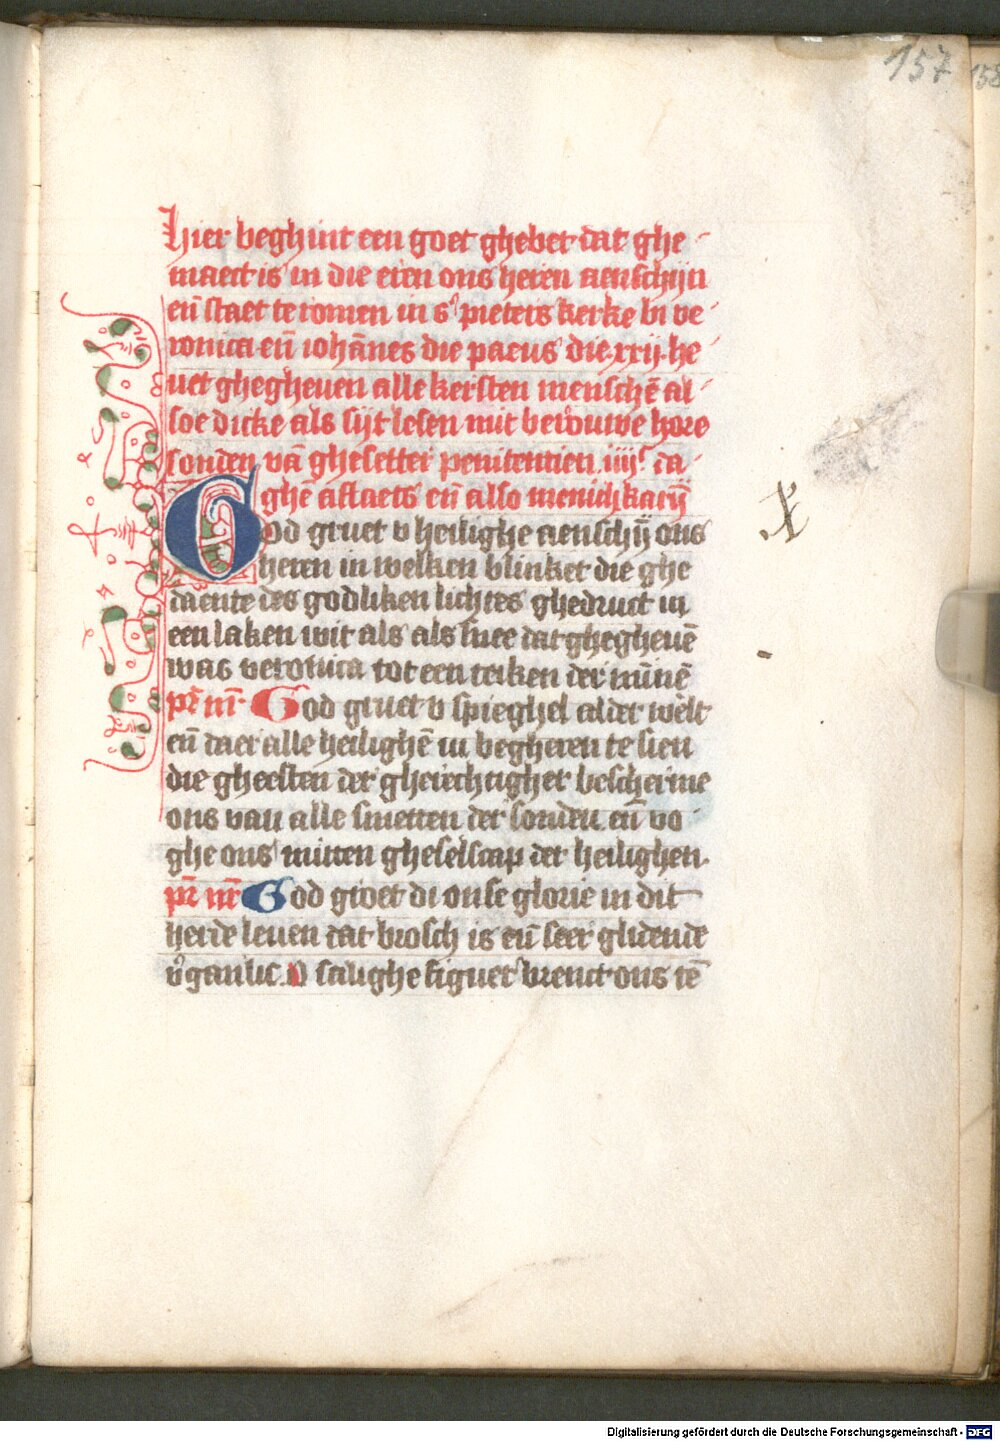 157
158
hier beghint een goet ghebet dat ghe
maect is in die eren ons heren aenschijn
eñ staet te romen in s' pieters kerke bi ve
ronica eñ iohānes die paeus die .xxij. he
uet ghegheuen alle kersten menschē al
soe dicke als sijt lesen mit berouwe hore
sonden vā ghesetter penitentien .iiij. da
ghē aflaets eñ also menich karij̄
God gruet v heilighe aenschij̄ ons
heren in welken blinket die ghe
daente des godliken lichtes ghedruct in
een laken wit als als snee dat ghegheuē
was veronica tot een teiken der minnē
pr̄ nr̄ God gruet v spieghel alder werlt
eñ daer alle heilighē in begheren te sien
die gheesten der gherechticheit bescherme
ons van alle smetten der sonden eñ vo
ghe ons mitten gheselscap der heilighen.
pr̄ nr̄ God groet di onse glorie in dit
herde leuen dat brosch is eñ seer glidende
v'ganlic. O salighe figuer brenct ons tē
Digitalisierung gefördert durch die Deutsche Forschungsgemeinschaft - DFG